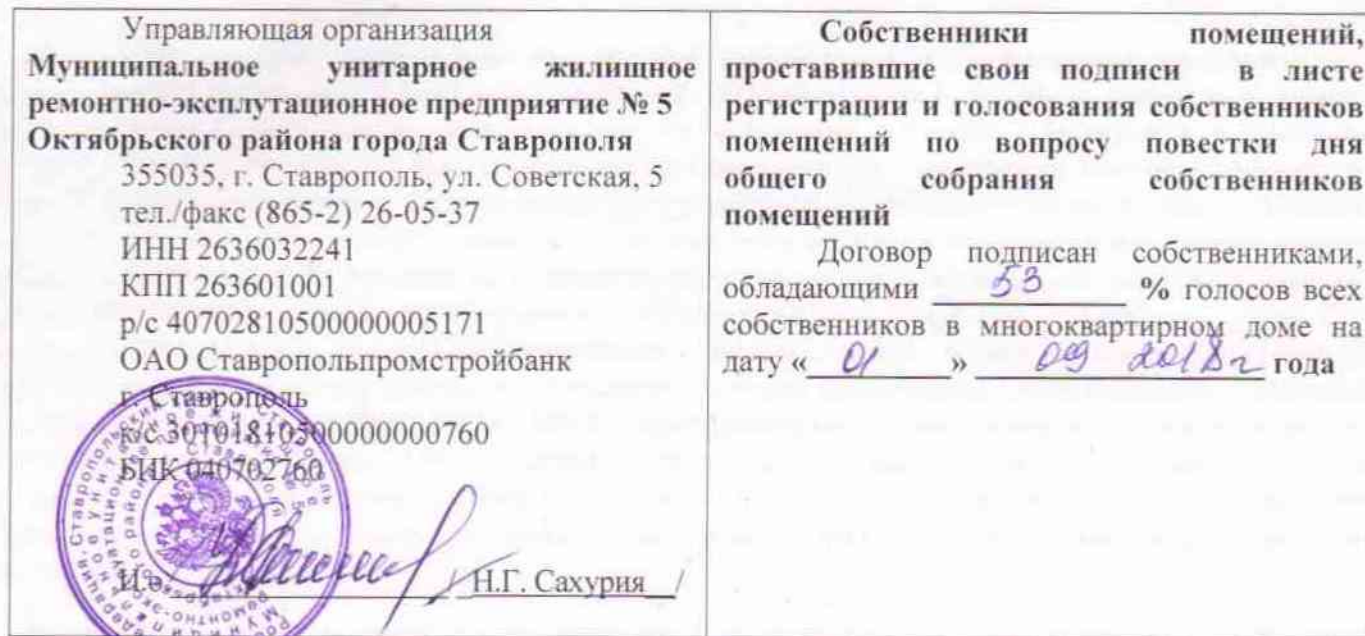 Управляющая организация
Муниципальное унитарное жилищное
ремонтно-эксплутационное предприятие № 5
Октябрьского района города Ставрополя
355035, г. Ставрополь, ул. Советская, 5
тел./факс (865-2) 26-05-37
ИНН 2636032241
КПП 263601001
р/с 40702810500000005171
ОАО Ставропольпромстройбанк
г. Ставрополь
к/с 30101810500000000760
БИК 040702760
И.о / / Н.Г. Сахурия /
Собственники помещений,
проставившие свои подписи в листе
регистрации и голосования собственников
помещений по вопросу повестки дня
общего собрания собственников
помещений
Договор подписан собственниками,
обладающими 53 % голосов всех
собственников в многоквартирном доме на
дату « 01 » 09 2018г года